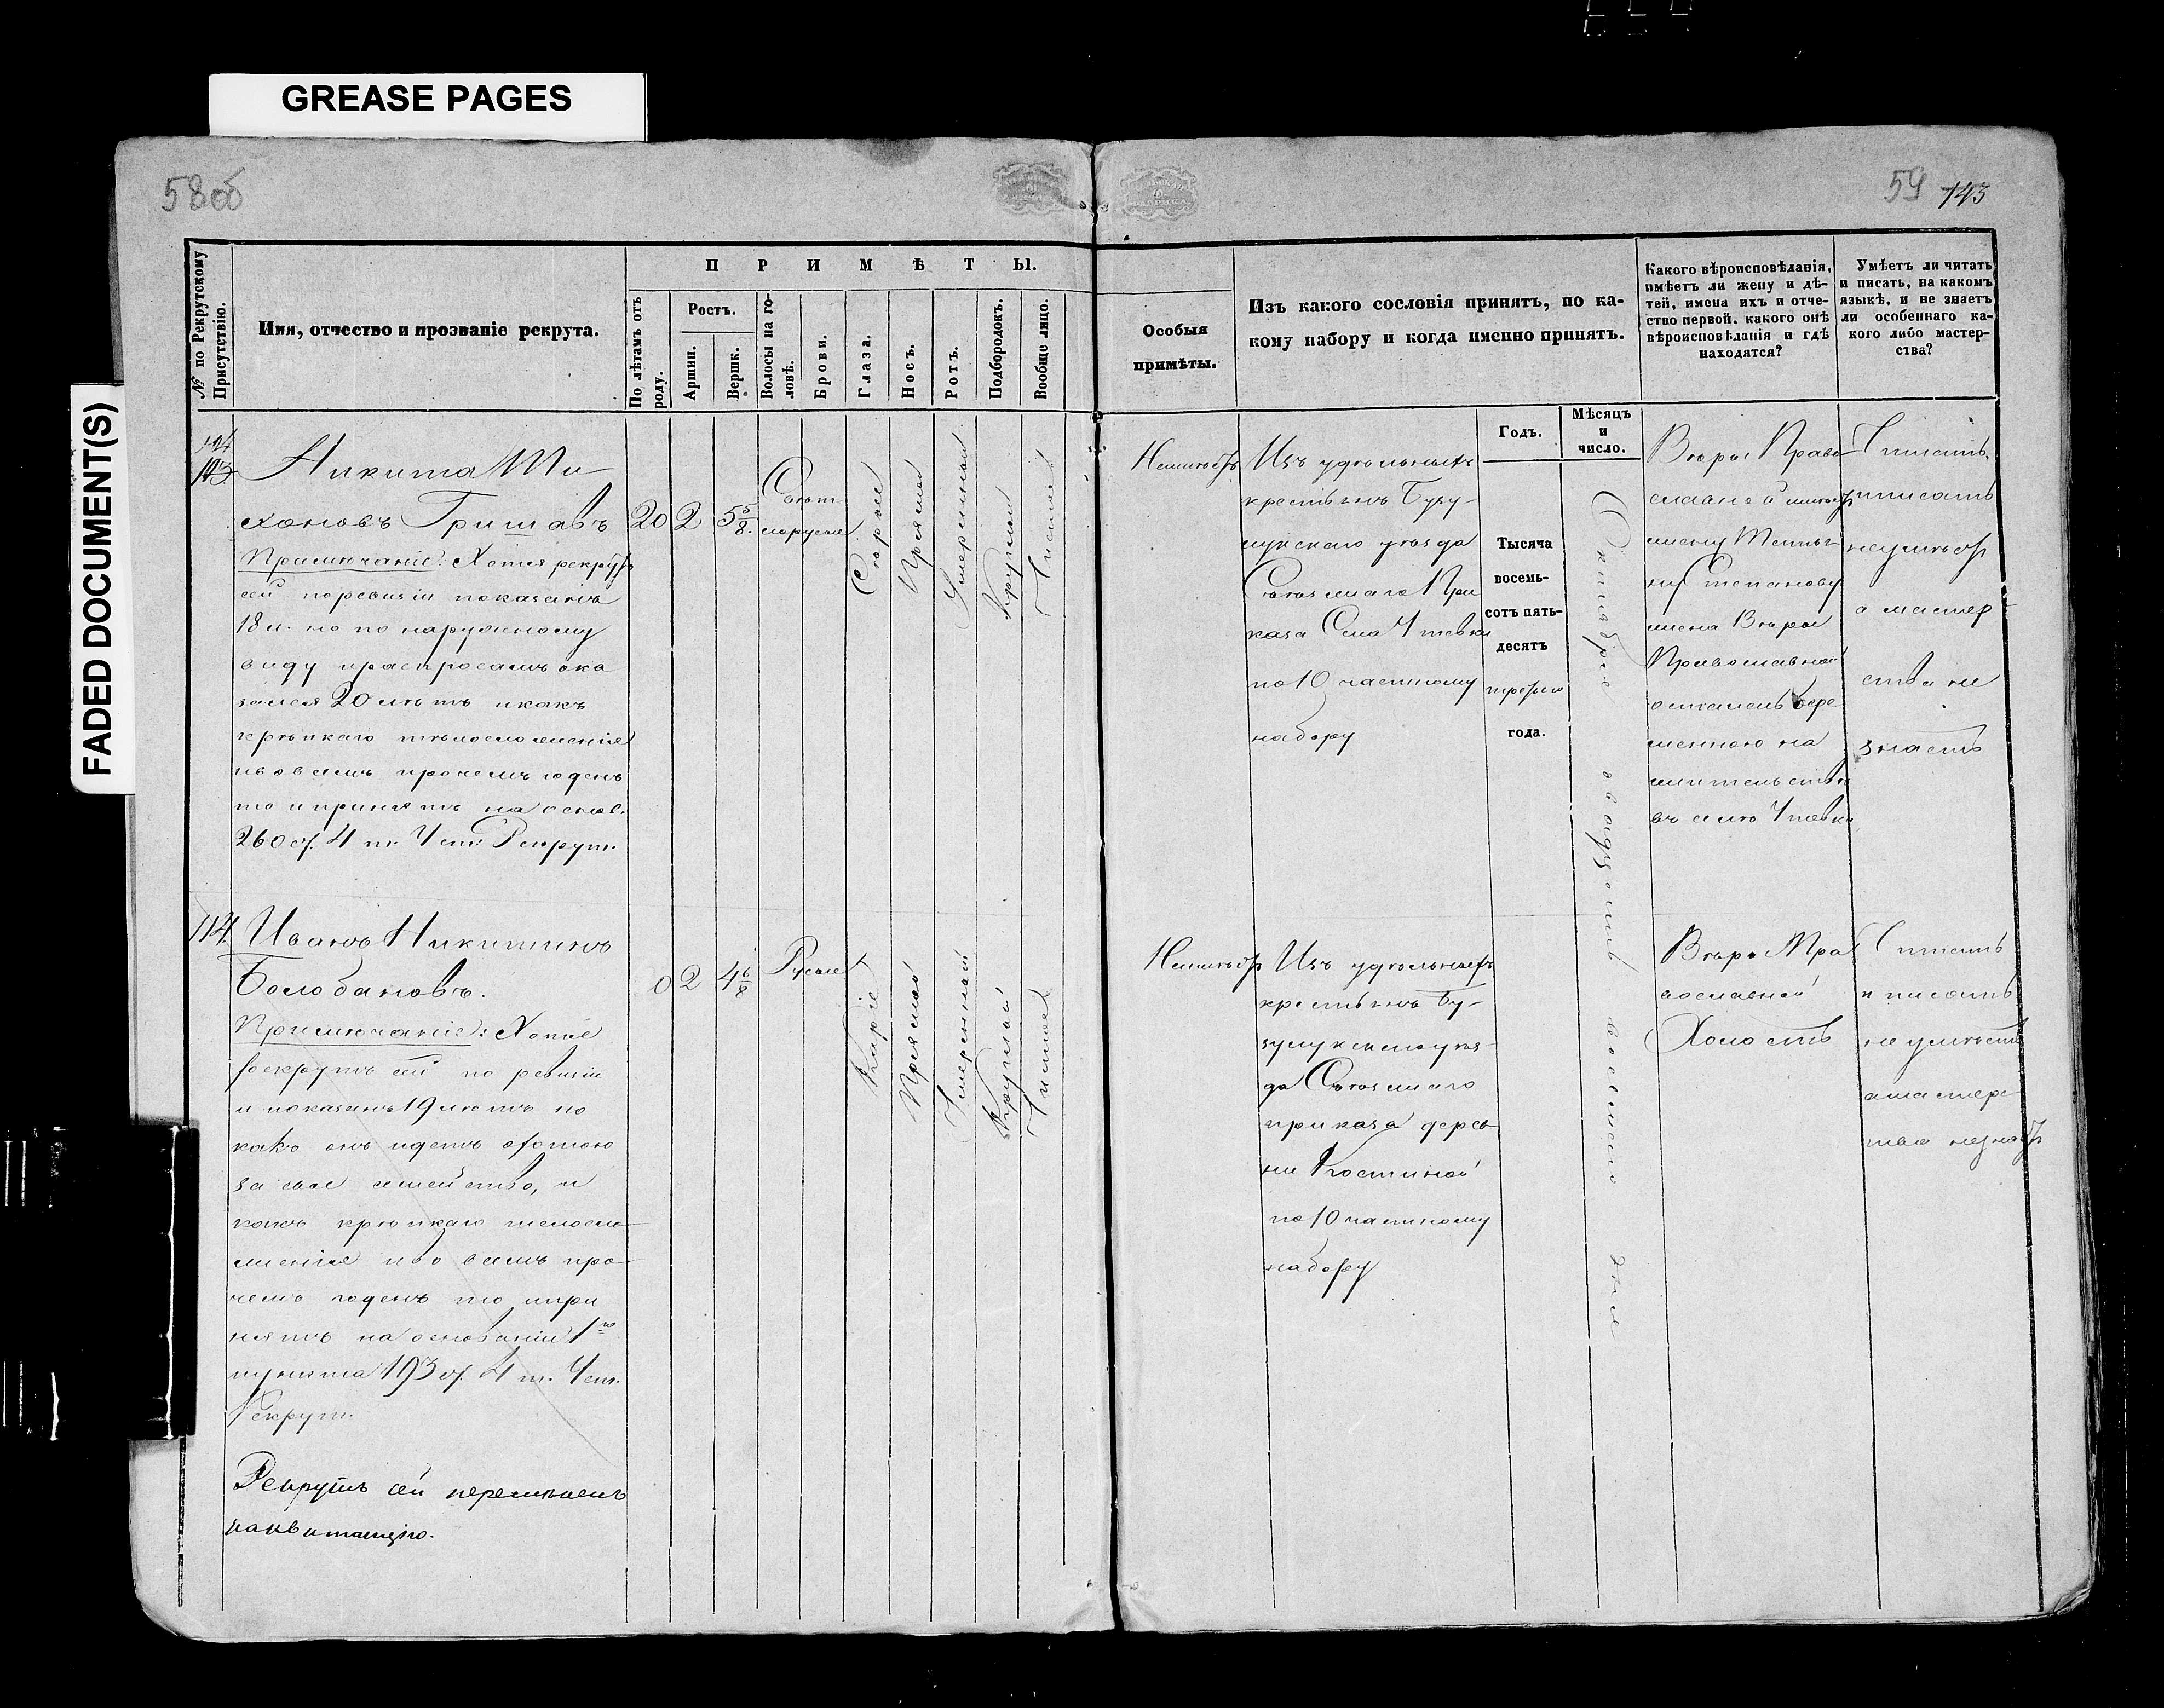 GREASE PAGES
FADED DOCUMENT(S)
58об
59 143
№ по Рекрутскому Присутствію.
Имя, отчество и прозваніе рекрута.
ПРИМѢТЫ.
По лѣтамъ отъ роду.
Ростъ.
Аршин.
Вершк.
Волосы на головѣ.
Брови.
Глаза.
Носъ.
Ротъ.
Подбородокъ.
Вообще лицо.
Особыя
примѣты.
Изъ какого сословія принятъ, по ка-
кому набору и когда именно принятъ.
Годъ.
Мѣсяцъ
и
число.
Какого вѣроисповѣданія,
имѣетъ ли жену и дѣ-
тей, имена ихъ и отче-
ство первой, какого онѣ
вѣроисповѣданія и гдѣ
находятся?
Умѣетъ ли читать
и писать, на какомъ
языкѣ, и не знаетъ
ли особеннаго ка-
кого либо мастер-
ства?
Никита Ти
хоновъ Гришавъ
Примѣчаніе: Хотя рекрутъ
сей по ревизіи показанъ
18 л. но по наружному
виду и распросамъ ока
зался 20 лѣтъ и какъ
крѣпкаго тѣлосложенія
и во всемъ прочемъ годенъ
то и принятъ на основ.
260 ст. 4 т. Уст. Рекрут.
20
2
5 5/8
Свѣт
лорусые
Сѣрые
Прямой
Умеренный
Круглый
Чистое
Неимѣетъ
Изъ удѣльныхъ
крестьянъ Бузу-
лукскаго уѣзда
Съѣзжаго При
каза Села Утевки
по 10 частному
набору
Тысяча
восемь-
сотъ пять-
десятъ
третьяго
года.
Октября двадцать восьмаго дня
Вѣры Право
славной имѣетъ
жену Татья
ну Степанову
жена Вѣры
Православной
осталась бере
менною на
жительствѣ
въ селѣ Утевки
Читать
и писать
неумѣетъ
а мастер
ства не
знаетъ
114
Иванъ Никитинъ
Болобановъ.
Примѣчаніе: Хотя
рекрутъ сей по ревизіи
и показанъ 19 лѣтъ но
какъ онъ идетъ охотою
за свое семейство, и
какъ крѣпкаго тѣлосло
женія и во всемъ про
чемъ годенъ то и при
нятъ на основаніи 1го
пункта 193 ст. 4 т. Уст.
Рекрут.
Рекрутъ сей перемѣненъ
на квитанцію.
2
4 6/8
Русые
Каріе
Прямой
Умеренный
Круглый
Чистое
Неимѣетъ
Изъ удѣльныхъ
крестьянъ Бу-
зулукскаго уѣз
да Съѣзжаго
приказа дерев
ни Костиной
по 10 частному
набору
Вѣры Пра
вославной
Холостъ
Читать
и писать
не умѣетъ
а мастер
тва не знаетъ